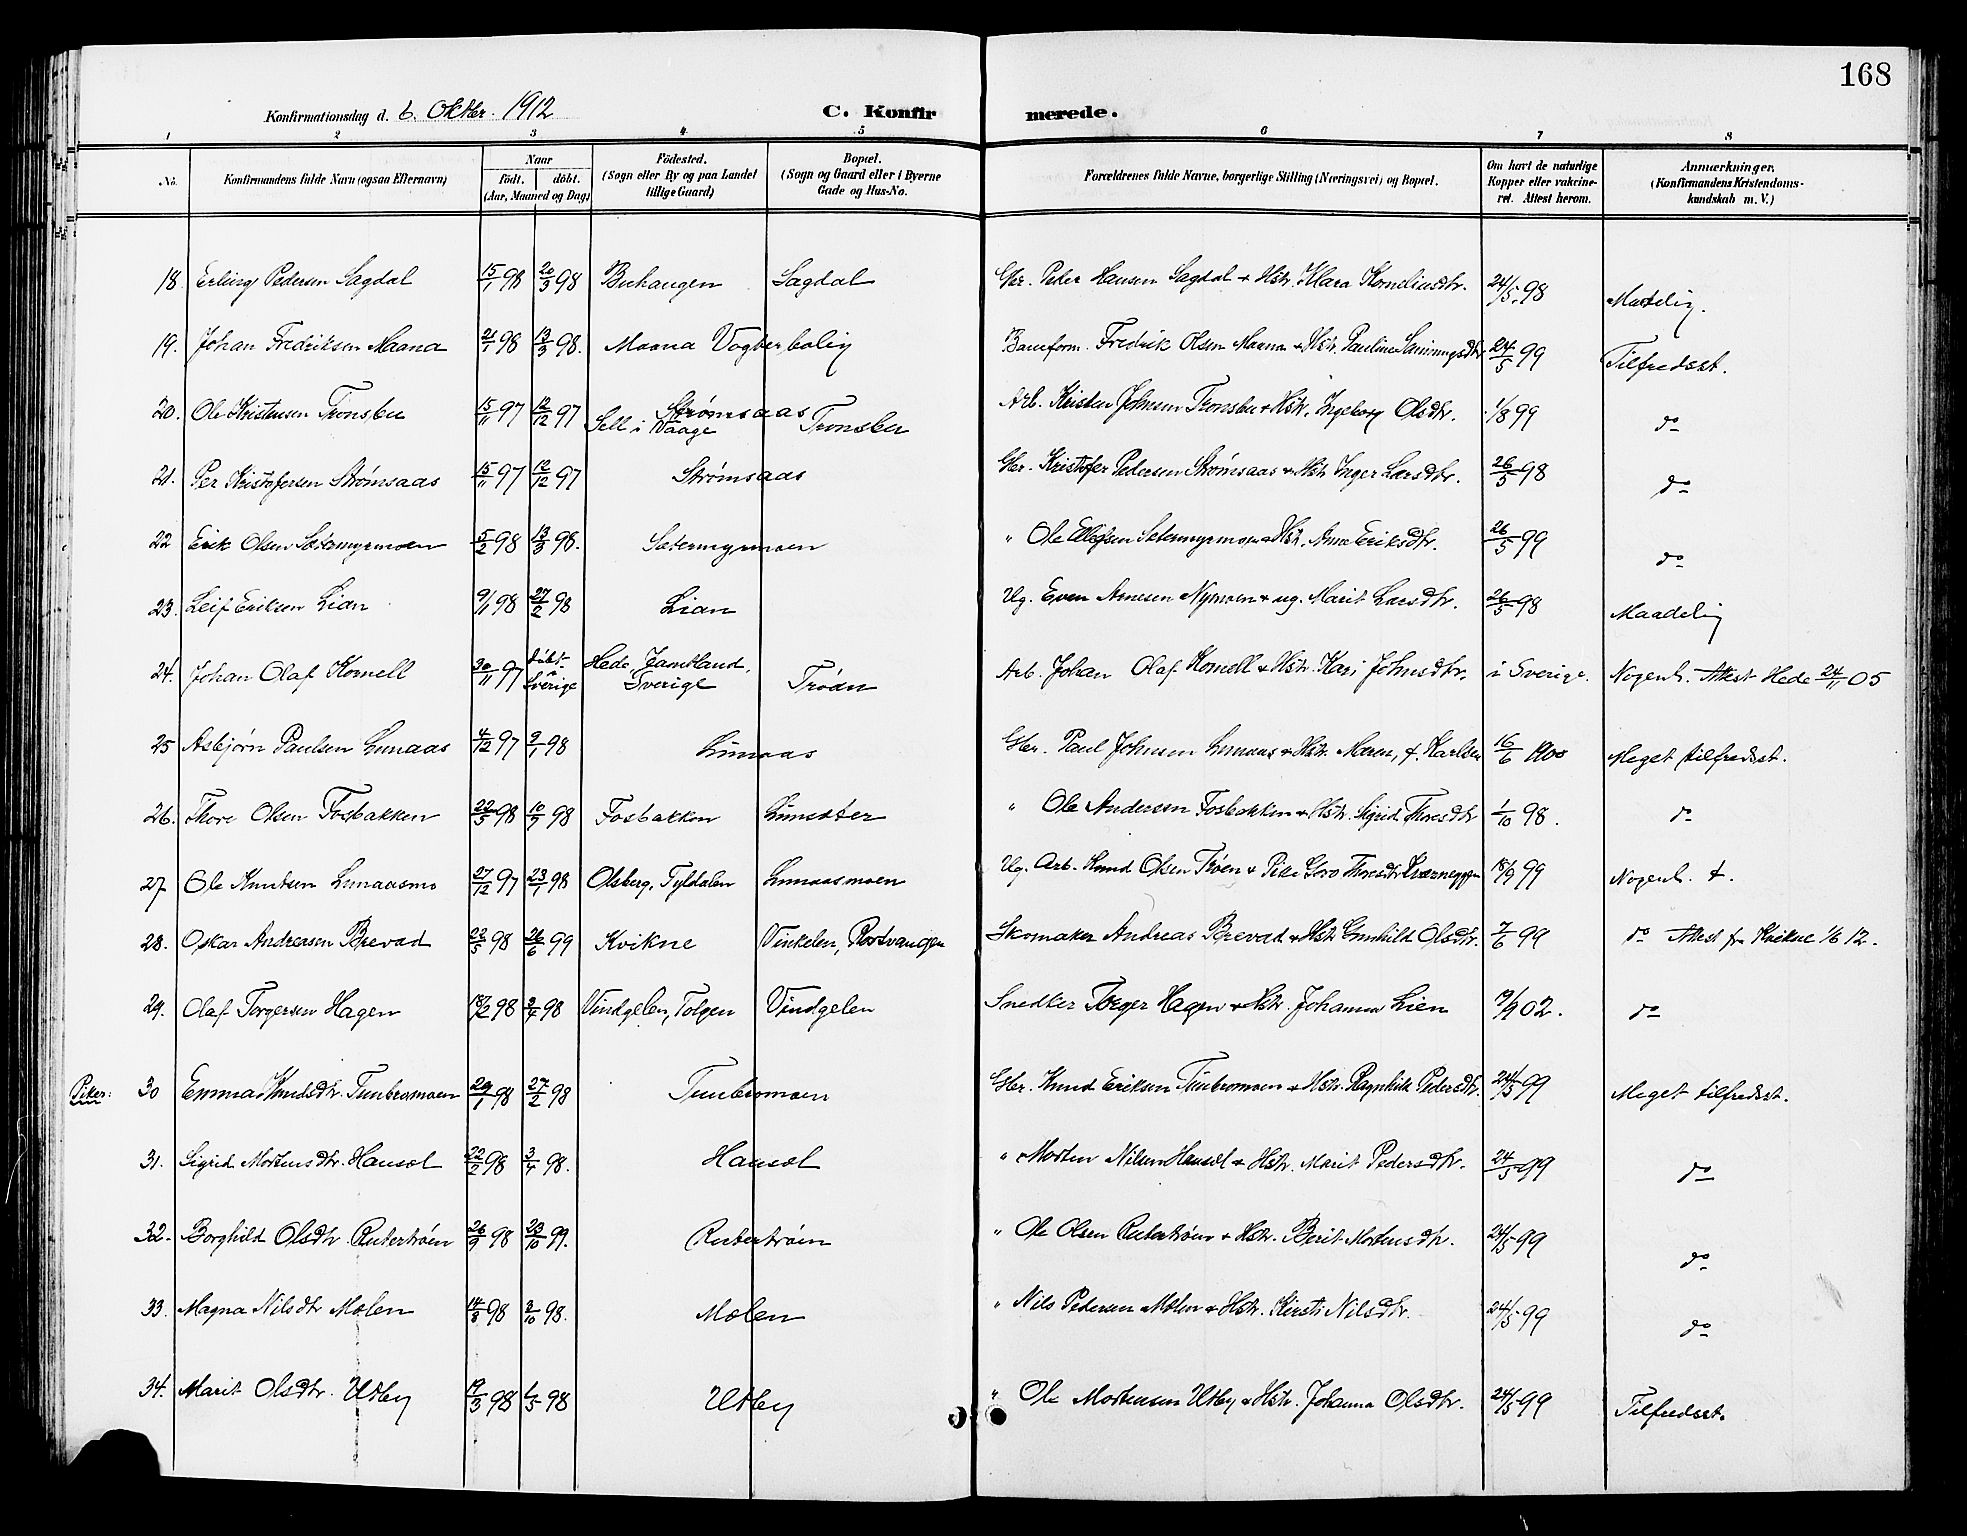 168
Konfirmationsdag d. 6. Oktbr. 1912 C. Konfirmerede.
1 2 3 4 5 6 7 8
No. Konfirmandens fulde Navn (ogsaa Efternavn) Naar Födt. döbt. (Aar, Maaned og Dag) Födested. (Sogn eller By og paa Landet tillige Gaard) Bopæl. (Sogn og Gaard eller i Byerne Gade og Hus-No. Forældrenes fulde Navne, borgerlige Stilling (Næringsvei) og Bopæl. Om havt de naturlige Kopper eller vakcineret. Attest herom. Anmærkninger. (Konfirmandens Kristendomskundskab m. V.)
18. Erling Pedersen Sagdal 15/1 98 20/3 98 Buhaugen Sagdal Gbr. Peder Hansen Sagdal & Hstr. Klara Korneliusdtr. 24/5 98 Maadelig.
19. Johan Fredriksen Maana 21/1 98 13/3 98. Maana Vogterbolig Baneform. Fredrik Olsen Maana & Hstr. Pauline 24/5 99 Tilfredsst.
20. Ole Kristensen Tronsbu 15/11 97 12/12 97 Strømsaas Sell i Vaage Tronsbu Arb. Kristen Johnsen Tronsbu & Hstr. Ingeborg Olsdtr. 1/8 99 do
21. Per Kristofersen Strømsaas 15/11 97 12/12 97 Strømsaas Gbr. Kristofer Pedersen Strømsaas & Hstr Inger Larsdtr. 26/5 98 do
22 Erik Olsen Sætermyrmoen 5/2 98 13/3 98. Sætermyrmoen " Ole Sætermyrmoen & Hstr. Anne Eriksdtr. 26/5 99 do
23. Leif Eriksen Lian 9/1 98 27/2 98 Lian Ug. Even Arnesen Nymoen & ug. Marit Larsdtr. 26/5 98 Maadelig
24. Johan Olaf Kornell 30/11 97 døbt i Sverige Hede, Jämtland, Sverige Trøan Arb. Johan Olaf Kornell & Hstr. Kari Johnsdtr. i Sverige. Nogenl. Attest Hede 24/11 05
25 Asbjørn Paulsen Lunaas 4/12 97 9/1 98 Lunaas Gbr. Paul Johnsen Lunaas & Hstr. Maren, f. Karlsen 16/6 1900 Meget tilfredsst.
26. Thore Olsen Fosbakken 22/5 98 10/7 98 Fosbakken " Ole Andersen Fosbakken & Hstr. Sigrid Thoresdtr 1/10 98. do
27. Ole Knutsen Lunaasmo 27/12 97 23/1 98 Olsberg, Tyldalen Lunaasmoen Ug. Arb. Knud Olsen Trøen & Pike Goro Thoresdtr Kværneggen 18/9 99 Nogenl. t.
28. Oskar Andreasen Brevad 22/5 98 26/6 99 Kvikne Vinkelen, Røstvangen Skomaker Andreas Brevad & Hstr Gunhild Olsdtr. 7/6 99 do Attest fr. Kvikne 1/6 12.
29. Olaf Torgersen Hagen 18/2 98 3/4 98 Vindgelen, Tolgen Vindgelen Snedker Torger Hagen & Hstr. Johanna Lien 19/9 02. do
Piker: 30 Emma Knudsdtr. Tunbromoen 29/1 98 27/2 98 Tunbromoen Gbr. Knud Eriksen Tunbromoen & Hstr. Ragnhild Pedersdtr. 24/5 99 Meget tilfredsst.
31. Sigrid Mortensdtr. Hansæl 22/2 98 3/4 98. Hansæl " Morten Nilsen Hansæl & Hstr. Marit Pedersdtr. 24/5 99 do
32. Borghild Olsdtr. Rutertrøen 26/9 98 23/10 99. Rutertrøen " Ole Olsen Rutertrøen & Hstr. Berit Mortensdtr. 24/5 99 do
33. Magna Nilsdtr Mælen 14/8 98 2/10 98. Mælen " Nils Pedersen Mælen & Hstr. Kirsti Nilsdtr. 24/5 99 do
34. Marit Olsdtr. Utby 19/3 98 1/5 98 Utby " Ole Mortensen Utby & Hstr. Johanna Olsdtr. 24/5 99 Tilfredsst.